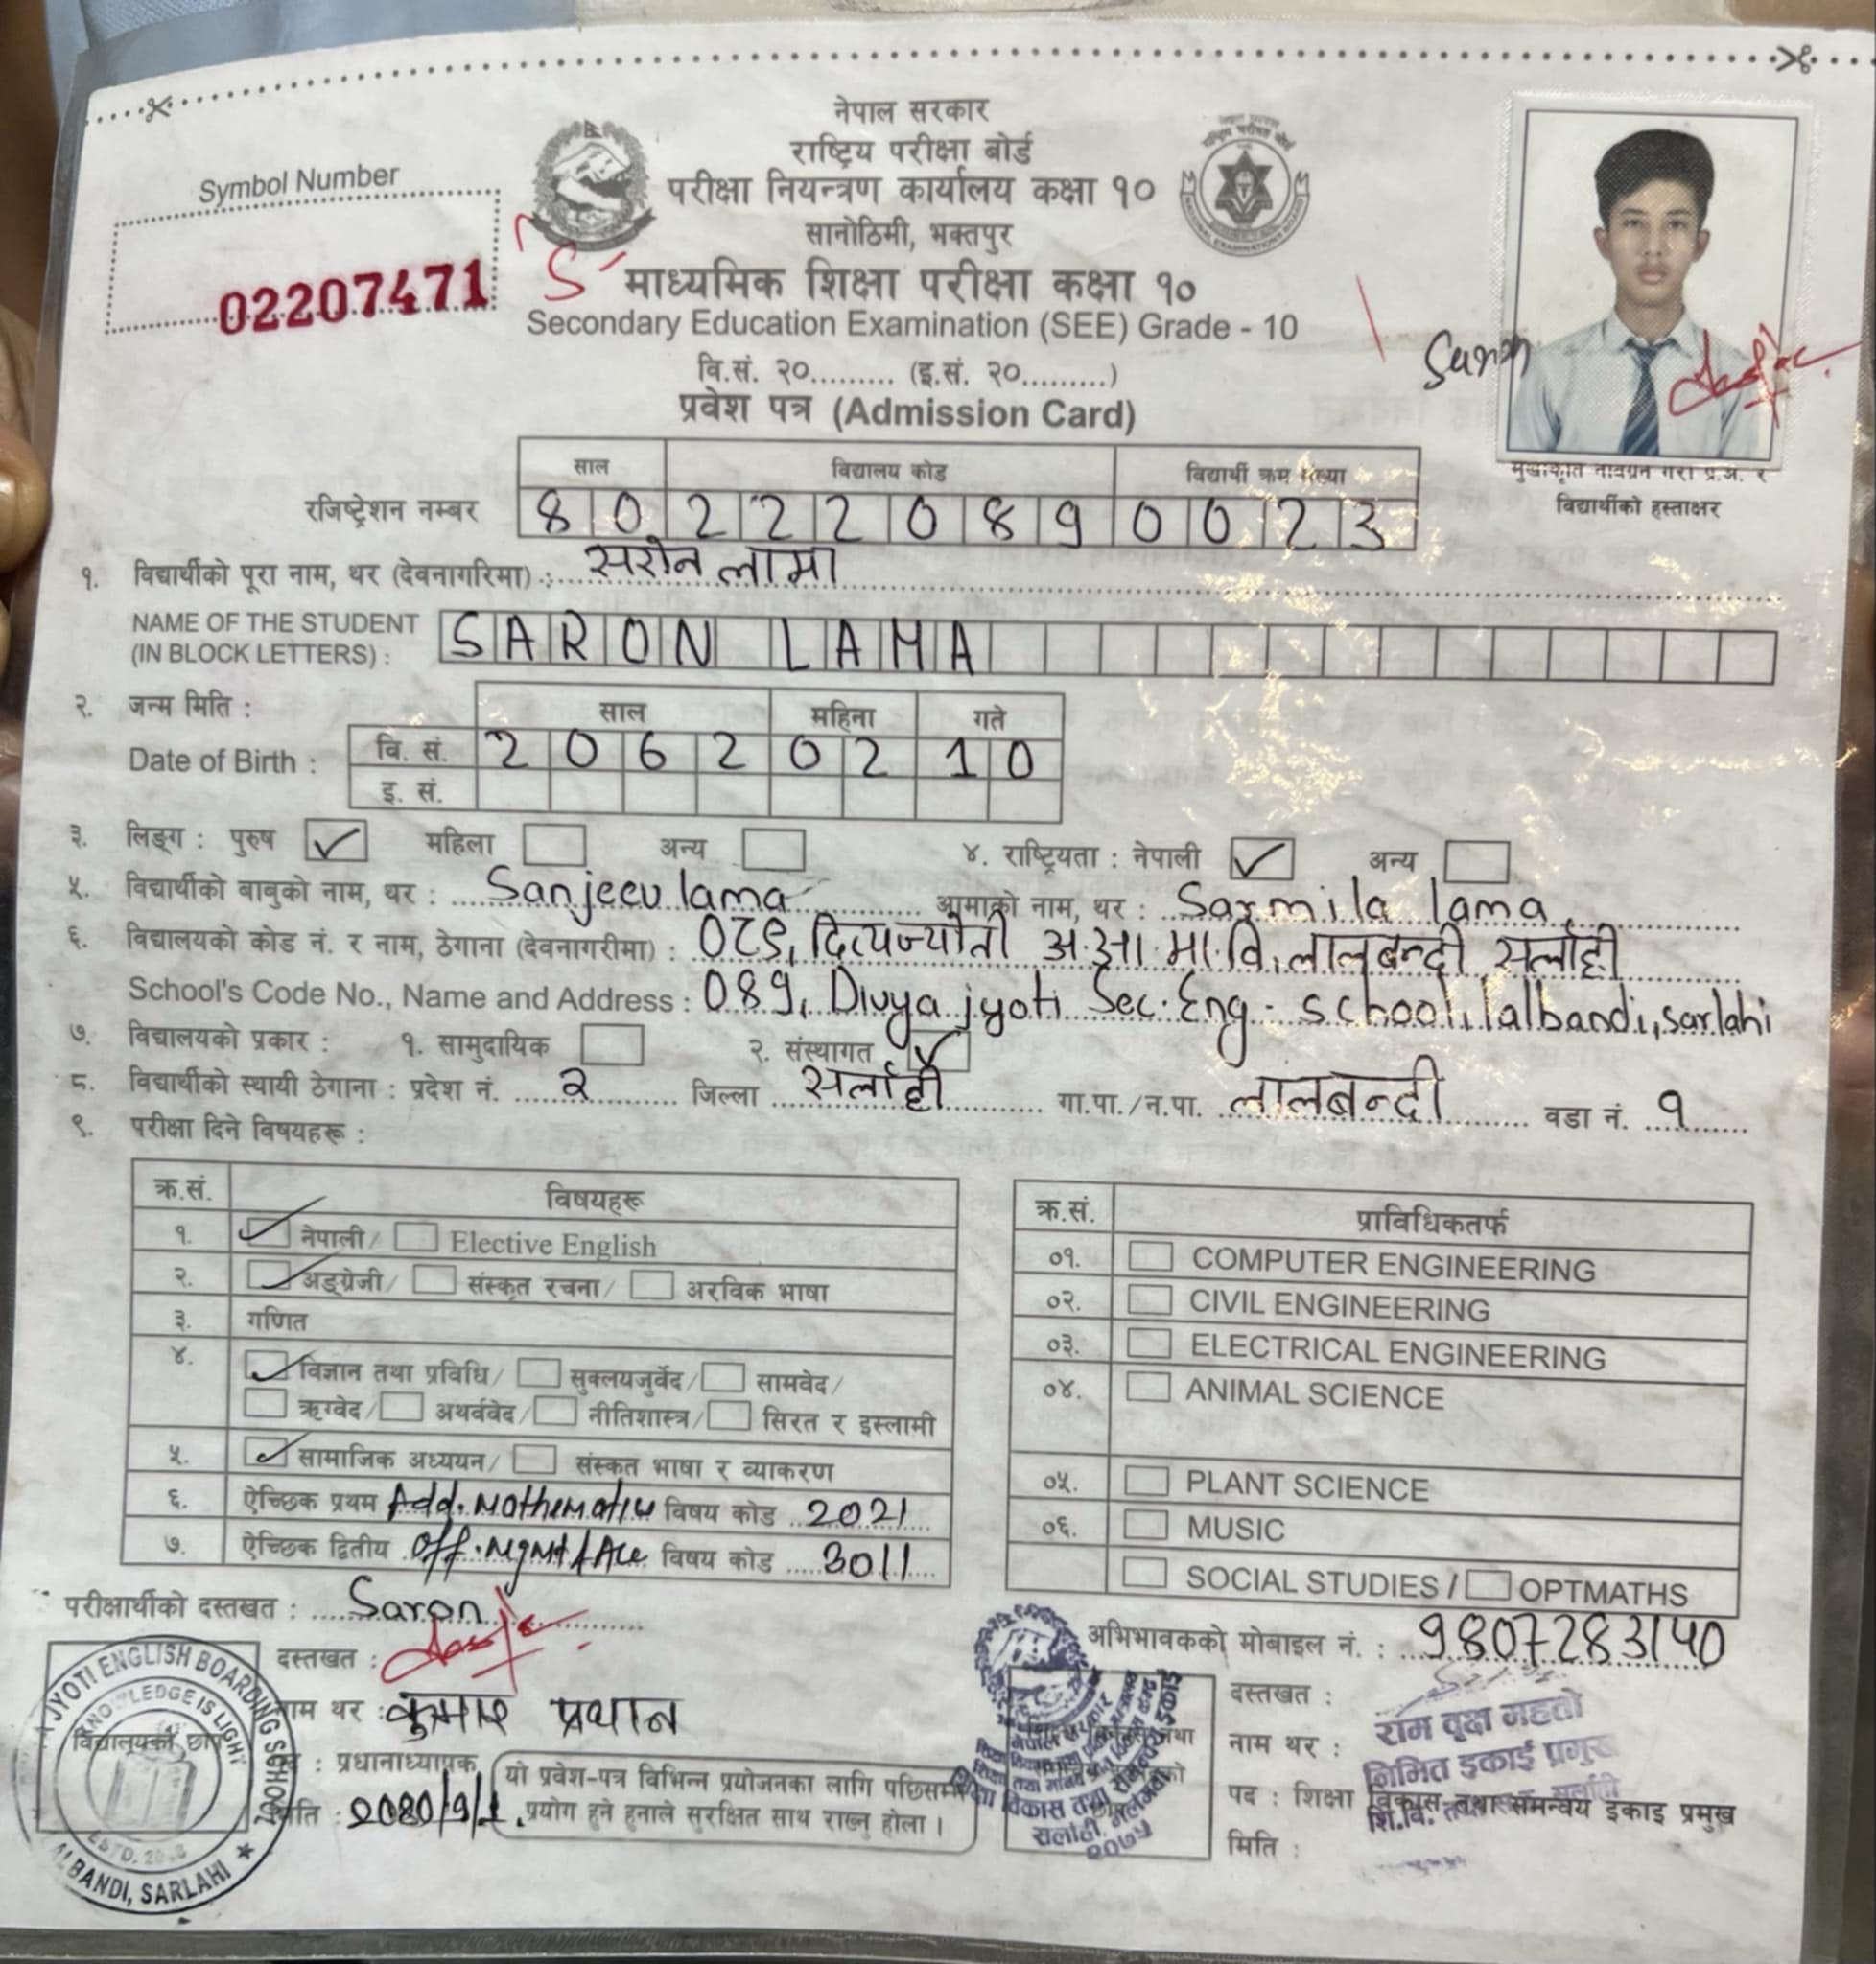 नेपाल सरकार
राष्ट्रिय परीक्षा बोर्ड
परीक्षा नियन्त्रण कार्यालय कक्षा १०
सानोठिमी, भक्तपुर
Symbol Number
02207471
S माध्यमिक शिक्षा परीक्षा कक्षा १०
Secondary Education Examination (SEE) Grade - 10
वि.सं. २०......... (इ.सं. २०.........)
प्रवेश पत्र (Admission Card)
Saron
मुखाकृति नछोपिने गरी प्र.अ. र
विद्यार्थीको हस्ताक्षर
साल विद्यालय कोड विद्यार्थी क्रम संख्या
रजिष्ट्रेशन नम्बर 8 0 2 2 2 0 8 9 0 0 2 3
१. विद्यार्थीको पूरा नाम, थर (देवनागरिमा) : सरोन लामा
NAME OF THE STUDENT
(IN BLOCK LETTERS) : SARON LAMA
२. जन्म मिति : साल महिना गते
Date of Birth : वि. सं. 2 0 6 2 0 2 1 0
इ. सं.
३. लिङ्ग : पुरुष ✓ महिला अन्य ४. राष्ट्रियता : नेपाली ✓ अन्य
५. विद्यार्थीको बाबुको नाम, थर : Sanjeev lama आमाको नाम, थर : Sarmila lama
६. विद्यालयको कोड नं. र नाम, ठेगाना (देवनागरीमा) : ०८९, दिव्यज्योती अ.आ.मा.वि, लालबन्दी सर्लाही
School's Code No., Name and Address : 089, Divya jyoti Sec. Eng. school, lalbandi, sarlahi
७. विद्यालयको प्रकार : १. सामुदायिक २. संस्थागत ✓
८. विद्यार्थीको स्थायी ठेगाना : प्रदेश नं. २ जिल्ला सर्लाही गा.पा./न.पा. लालबन्दी वडा नं. १
९. परीक्षा दिने विषयहरू :
क्र.सं. विषयहरू
१. ✓ नेपाली/ Elective English
२. ✓ अङ्ग्रेजी/ संस्कृत रचना/ अरविक भाषा
३. गणित
४. ✓ विज्ञान तथा प्रविधि/ सुक्लयजुर्वेद/ सामवेद/
ऋग्वेद/ अथर्ववेद/ नीतिशास्त्र/ सिरत र इस्लामी
५. ✓ सामाजिक अध्ययन/ संस्कत भाषा र व्याकरण
६. ऐच्छिक प्रथम Add. Mathematics विषय कोड 2021
७. ऐच्छिक द्वितीय Off. Mgmt & Acc विषय कोड 3011
क्र.सं. प्राविधिकतर्फ
०१. COMPUTER ENGINEERING
०२. CIVIL ENGINEERING
०३. ELECTRICAL ENGINEERING
०४. ANIMAL SCIENCE
०५. PLANT SCIENCE
०६. MUSIC
SOCIAL STUDIES / OPTMATHS
परीक्षार्थीको दस्तखत : Saron
दस्तखत :
नाम थर : कुमार प्रधान
: प्रधानाध्यापक
मिति : 2080/9/1
विद्यालयको छाप
JYOTI ENGLISH BOARDING SCHOOL
KNOWLEDGE IS LIGHT
LALBANDI, SARLAHI
यो प्रवेश-पत्र विभिन्न प्रयोजनका लागि पछिसम्म
प्रयोग हुने हुनाले सुरक्षित साथ राख्नु होला ।
अभिभावकको मोबाइल नं. : 9807283140
दस्तखत :
नाम थर : राम वृक्ष महतो
निमित इकाई प्रमुख
पद : शिक्षा विकास तथा समन्वय इकाइ प्रमुख
मिति :
सर्लाही
२०७५